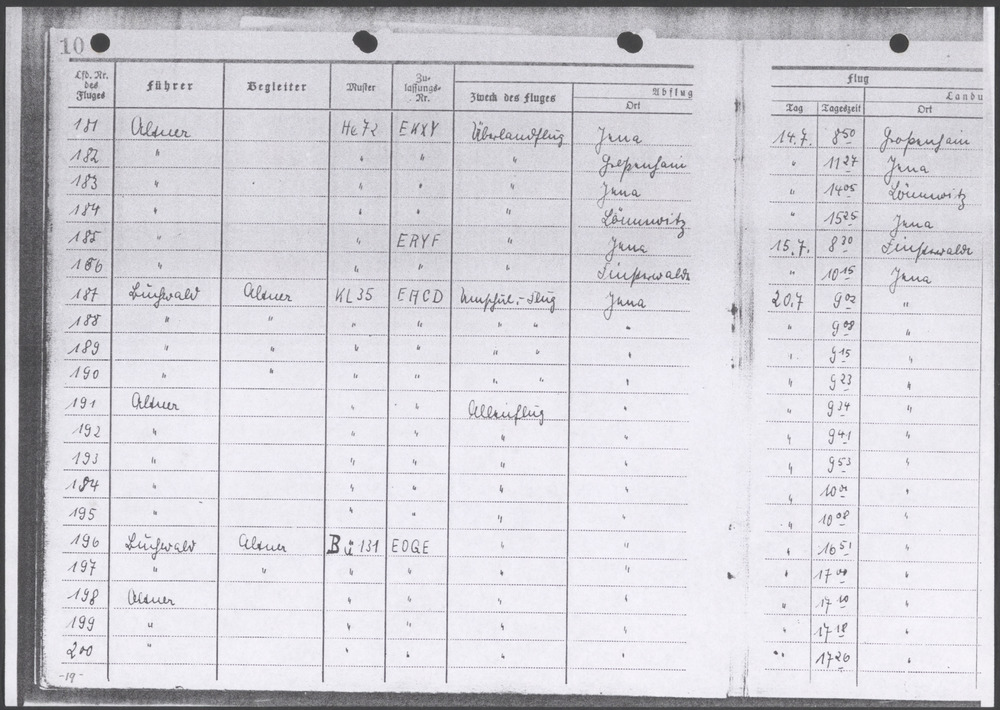 10
Lfd. Nr. des Fluges Führer Begleiter Muster Zulassungs-Nr. Zweck des Fluges Abflug Ort Flug Tag Tageszeit Landu Ort
181 Altner He 72 EKXY Überlandflug Jena 14.7. 8 50 Großenhain
182 " " " " Großenhain " 11 27 Jena
183 " " " " Jena " 14 05 Lönnewitz
184 " " " " Lönnewitz " 15 25 Jena
185 " " ERYF " Jena 15.7. 8 20 Finsterwalde
186 " " " " Finsterwalde " 10 15 Jena
187 Buchwald Altner KL 35 EHCD Umschul.-Flug Jena 20.7 9 02 "
188 " " " " " " " " 9 08 "
189 " " " " " " " " 9 15 "
190 " " " " " " " " 9 23 "
191 Altner " " Alleinflug " " 9 34 "
192 " " " " " " 9 41 "
193 " " " " " " 9 53 "
194 " " " " " " 10 01 "
195 " " " " " " 10 08 "
196 Buchwald Altner Bü 131 EOGE " " " 16 51 "
197 " " " " " " " 17 01 "
198 Altner " " " " " 17 10 "
199 " " " " " " 17 18 "
200 " " " " " " 17 26 "
-19-